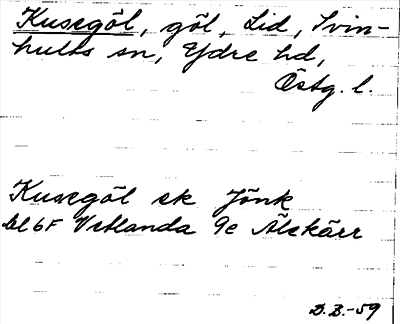 Kusegöl, göl, Lid, Svin-
hults sn, Ydre hd,
Östg. l.
Kusegöl ek Jönk
bl 6F Vetlanda 9e Älekärr
D.B.-59